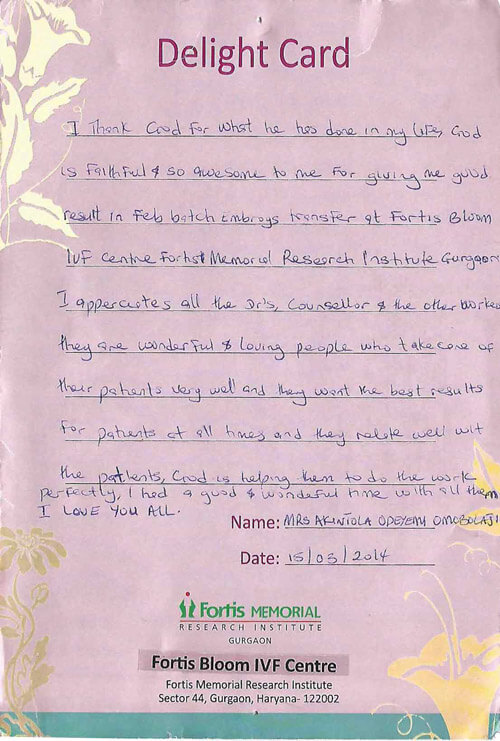 Delight Card
I Thank God for what he has done in my life, God
is faithful & so awesome to me for giving me good
result in Feb batch Embroys transfer at Fortis Bloom
IVF Centre Fortist Memorial Research Institute Gurgaon
I apperciates all the Dr's, Counsellor & the other worker
they are wonderful & loving people who take care of
their patients very well and they want the best results
for patients at all times and they relate well wit
the patients, God is helping them to do the work
perfectly, I had a good & wonderful time with all them
I LOVE YOU ALL.
Name: MRS AKINTOLA ODEYEMI OMOBOLAJI
Date: 15/03/2014
Fortis MEMORIAL
RESEARCH INSTITUTE
GURGAON
Fortis Bloom IVF Centre
Fortis Memorial Research Institute
Sector 44, Gurgaon, Haryana- 122002